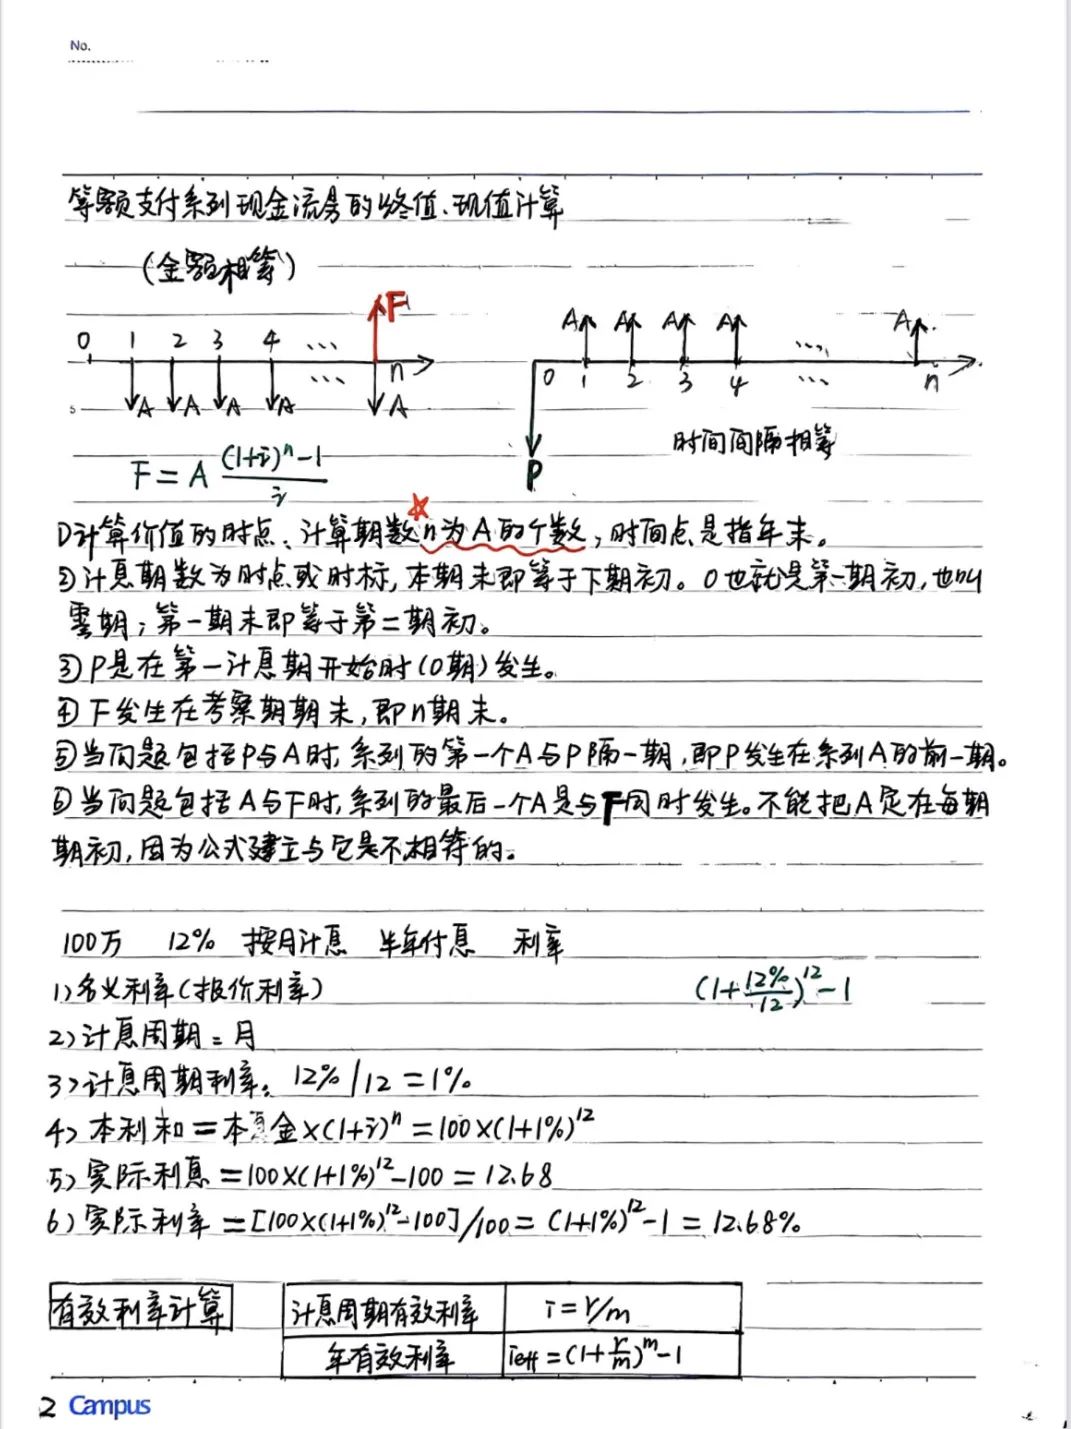 No.
等额支付系列现金流量的终值、现值计算
(金额相等)
F
0 1 2 3 4 ... n
...
A A A A A
A A A A A
0 1 2 3 4 ... n
P
时间间隔相等
F = A ((1+i)^n - 1)/i
①计算价值的时点、计算期数n为A的个数，时间点是指年末。
②计息期数为时点或时标，本期末即等于下期初。0也就是第一期初，也叫
零期；第一期末即等于第二期初。
③P是在第一计息期开始时(0期)发生。
④F发生在考察期期末，即n期末。
⑤当问题包括P与A时，系列的第一个A与P隔一期，即P发生在系列A的前一期。
⑥当问题包括A与F时，系列的最后一个A是与F同时发生。不能把A定在每期
期初，因为公式建立与它是不相符的。
100万 12% 按月计息 半年付息 利率
1)名义利率(报价利率) (1+12%/12)^12 - 1
2)计息周期=月
3)计息周期利率: 12%/12=1%
4)本利和=本金×(1+i)^n=100×(1+1%)^12
5)实际利息=100×(1+1%)^12-100=12.68
6)实际利率=[100×(1+1%)^12-100]/100=(1+1%)^12-1=12.68%
有效利率计算
计息周期有效利率 i=r/m
年有效利率 ieff=(1+r/m)^m-1
2 Campus